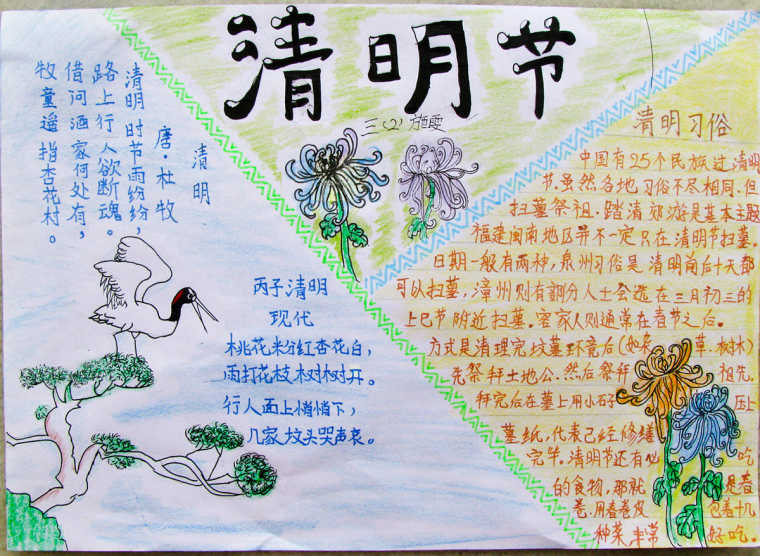 清明节
三(2) 施雯
清明
唐·杜牧
清明时节雨纷纷，
路上行人欲断魂。
借问酒家何处有，
牧童遥指杏花村。
丙子清明
现代
桃花粉红杏花白，
雨打花枝树树开。
行人面上悄悄下，
几家坟头哭声哀。
清明习俗
中国有25个民族过清明
节.虽然各地习俗不尽相同.但
扫墓祭祖.踏清郊游是基本主题
福建闽南地区并不一定只在清明节扫墓.
日期一般有两种，泉州习俗是清明前后十天都
可以扫墓，漳州则有部分人士会选在三月初三的
上巳节附近扫墓.客家人则通常在春节之后。
方式是清理完坟墓环境后(如 草.树木)
先祭拜土地公.然后祭拜 祖先.
拜完后在墓上用小石子 压上
墓纸，代表已经修缮
完毕.清明节还有 吃
的食物，那就 是春
卷.用春卷皮 包着十几
种菜.非常 好吃。